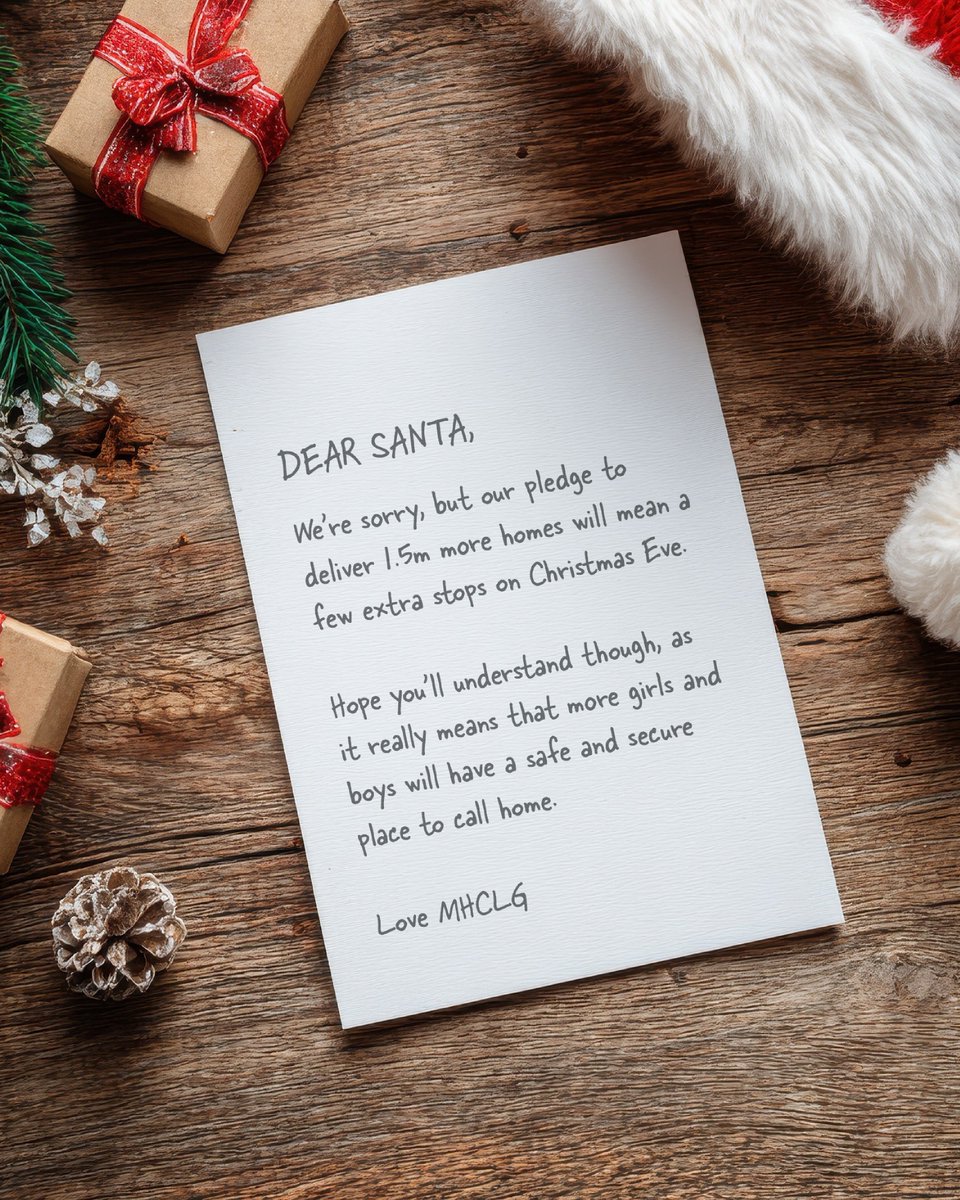 DEAR SANTA,
We're sorry, but our pledge to
deliver 1.5m more homes will mean a
few extra stops on Christmas Eve.
Hope you'll understand though, as
it really means that more girls and
boys will have a safe and secure
place to call home.
Love MHCLG